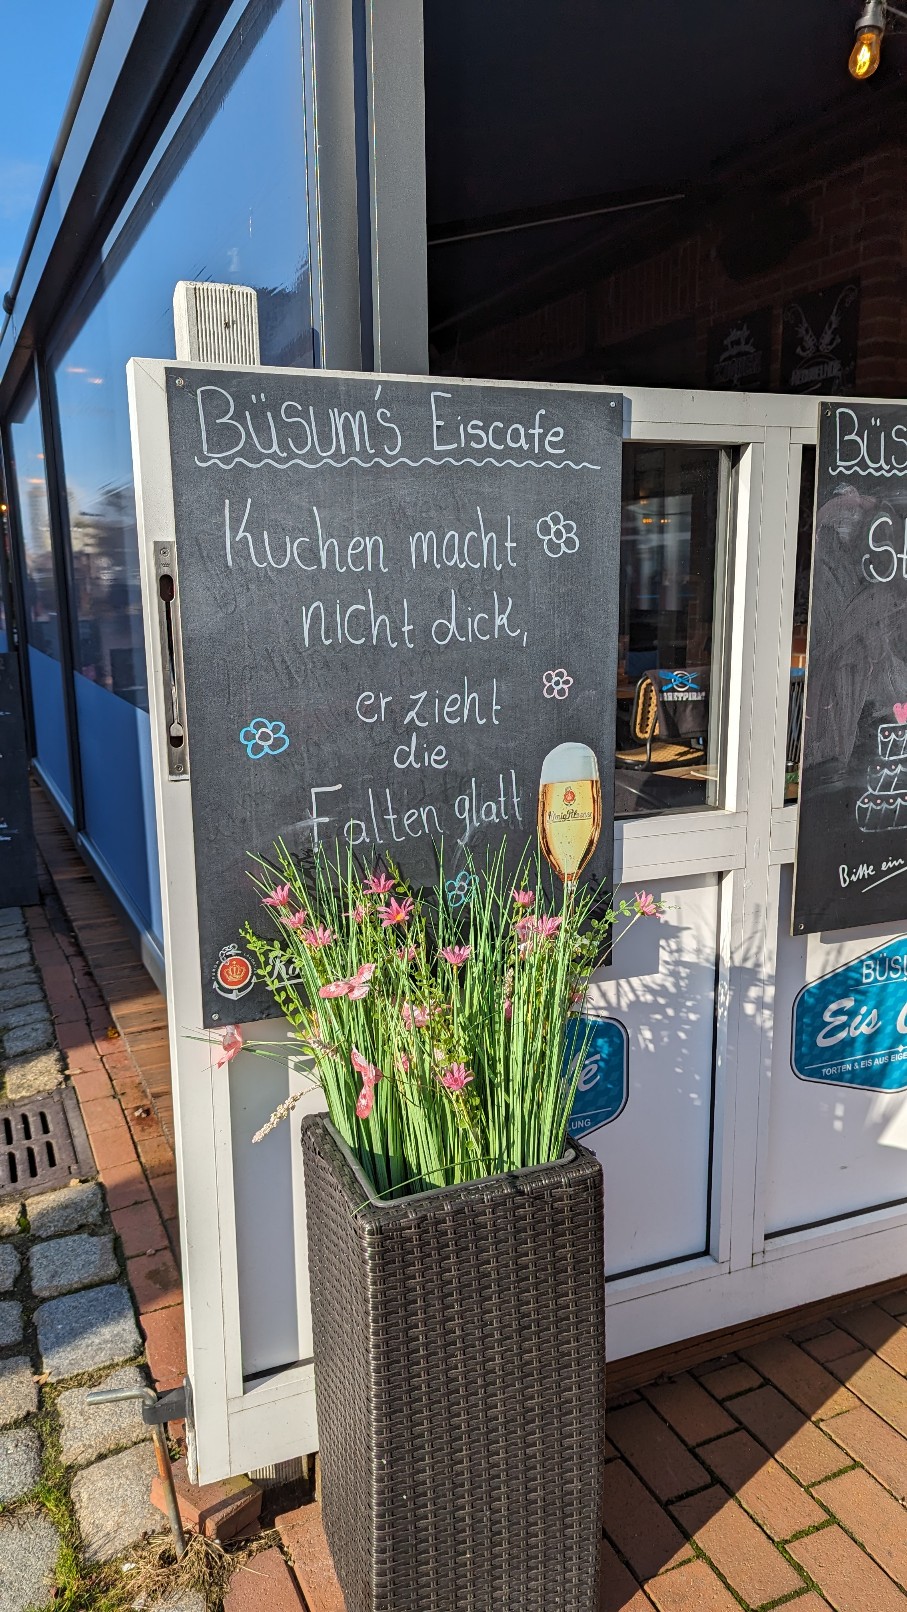 Büsum's Eiscafe
Kuchen macht
nicht dick,
er zieht
die
Falten glatt
König Pilsener
Büs
St
Bitte ein
BÜSU
Eis
TORTEN & EIS AUS EIGE
LUNG